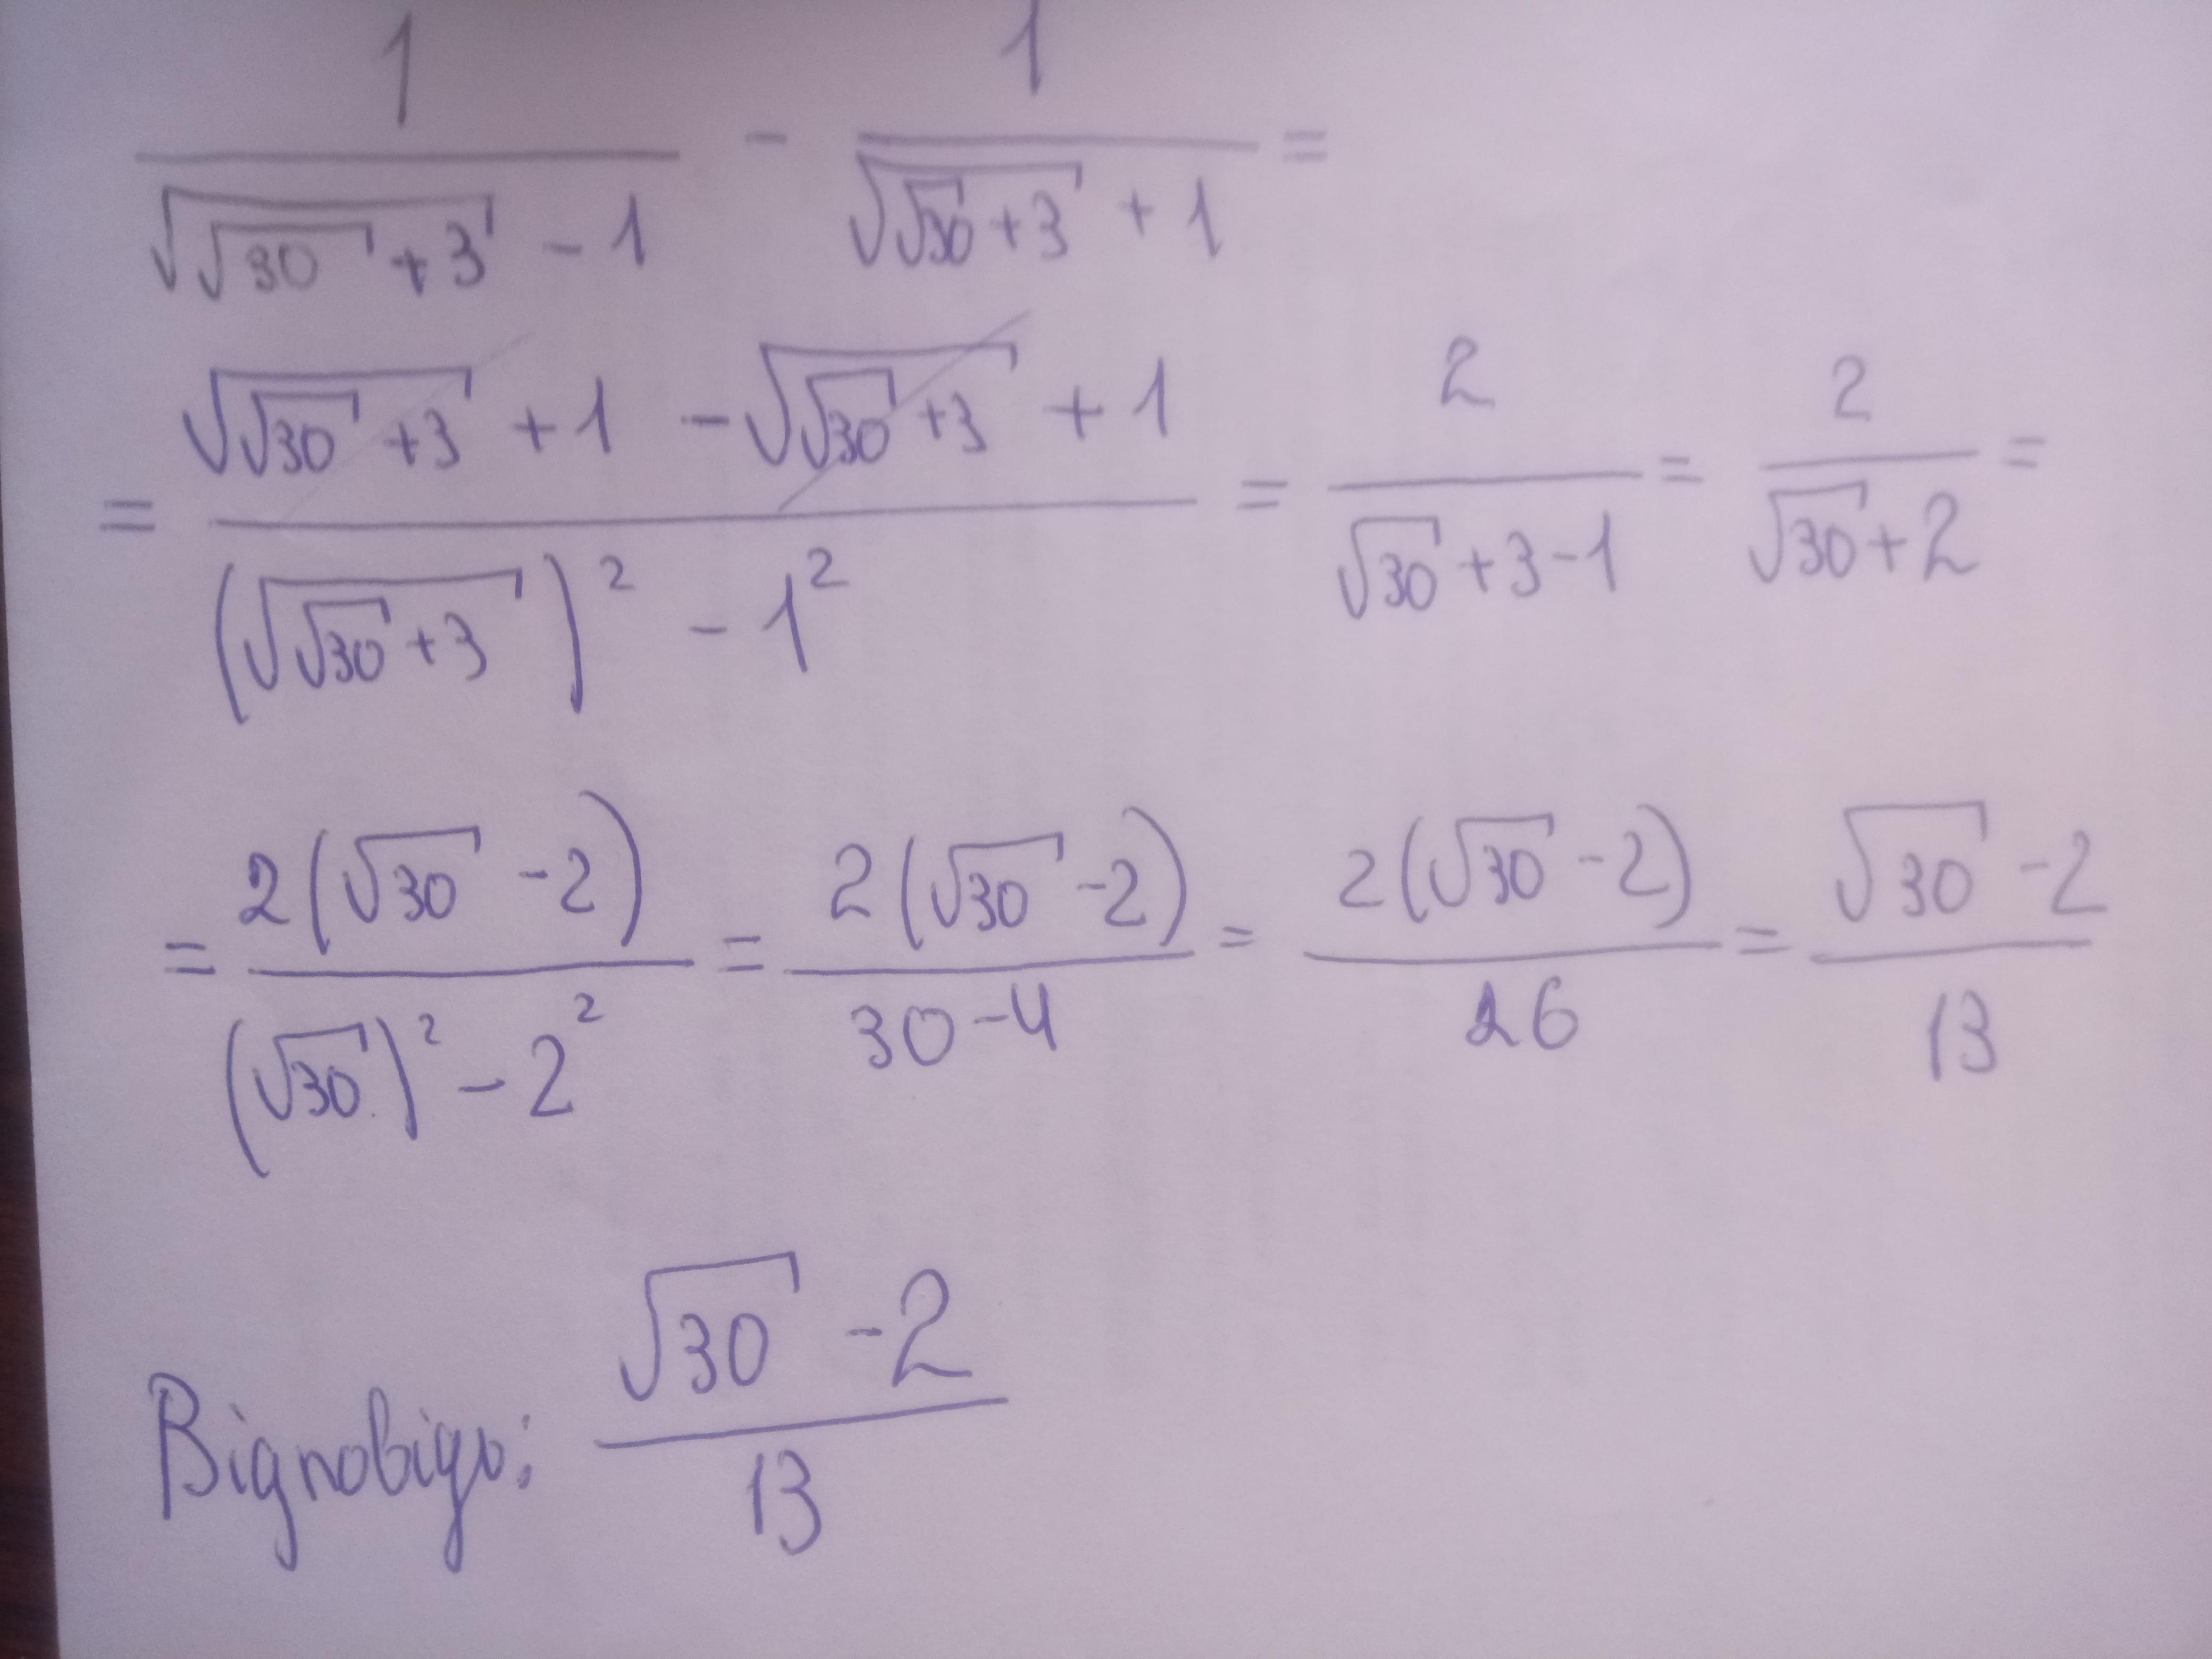 1/(√(√30 + 3) - 1) - 1/(√(√30 + 3) + 1) =
= (√(√30 + 3) + 1 - √(√30 + 3) + 1)/((√(√30 + 3))² - 1²) = 2/(√30 + 3 - 1) = 2/(√30 + 2) =
= 2(√30 - 2)/((√30)² - 2²) = 2(√30 - 2)/(30 - 4) = 2(√30 - 2)/26 = (√30 - 2)/13
Відповідь: (√30 - 2)/13